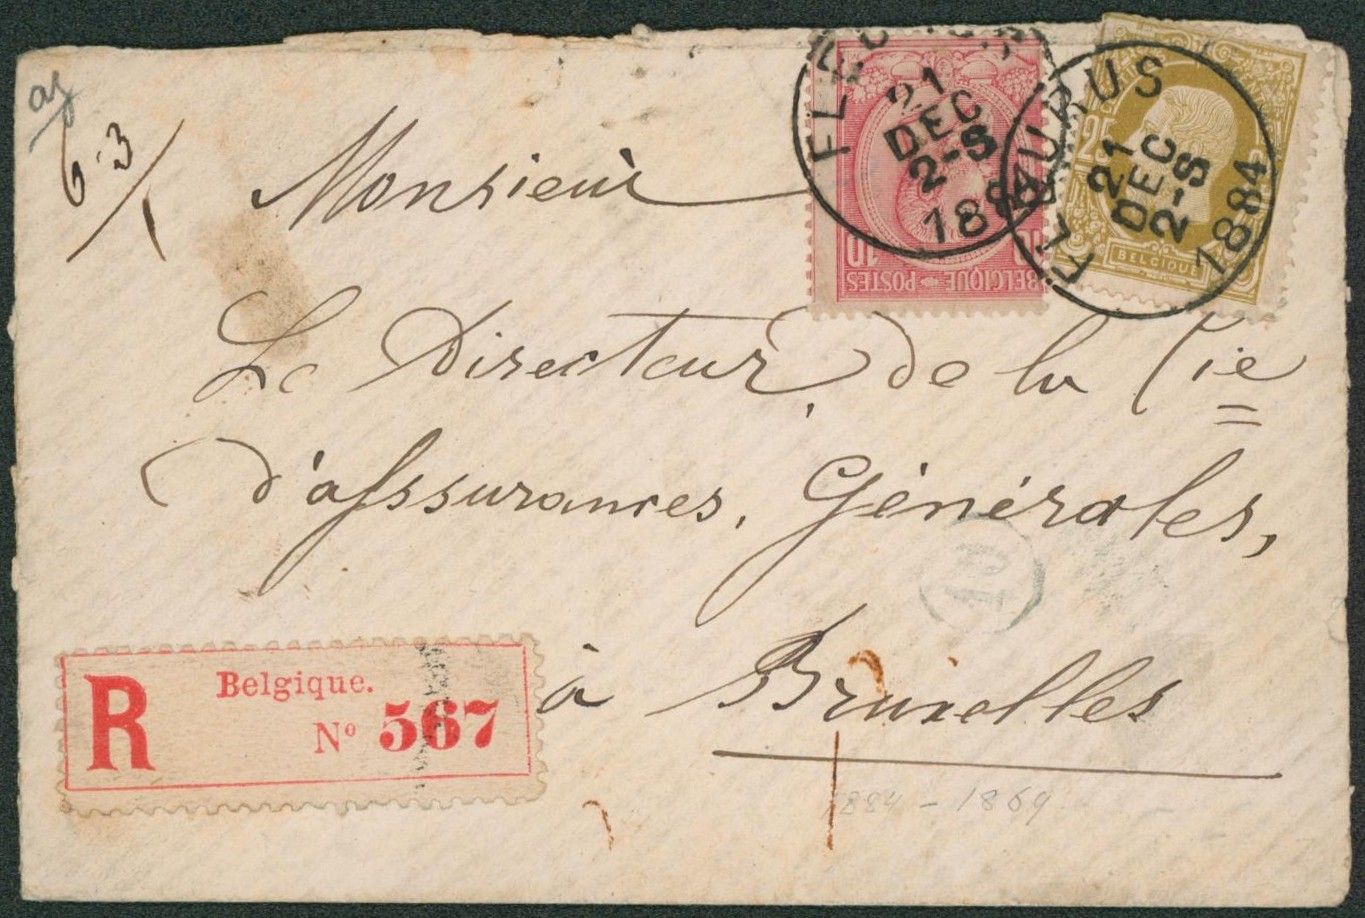 6.3
FLEURUS
21
DEC
2-S
1884
FLEURUS
21
DEC
2-S
1884
10
10
BELGIQUE POSTES
25
BELGIQUE
Monsieur
Le Directeur, de la Cie
d'assurances, Générales,
10
à Bruxelles
R
Belgique.
Nº 567
1884 - 1869